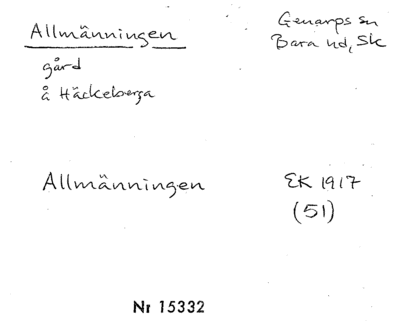 Allmänningen
Genarps sn
Bara hd, Sk
gård
å Häckeberga
Allmänningen
EK 1917
(51)
Nr 15332